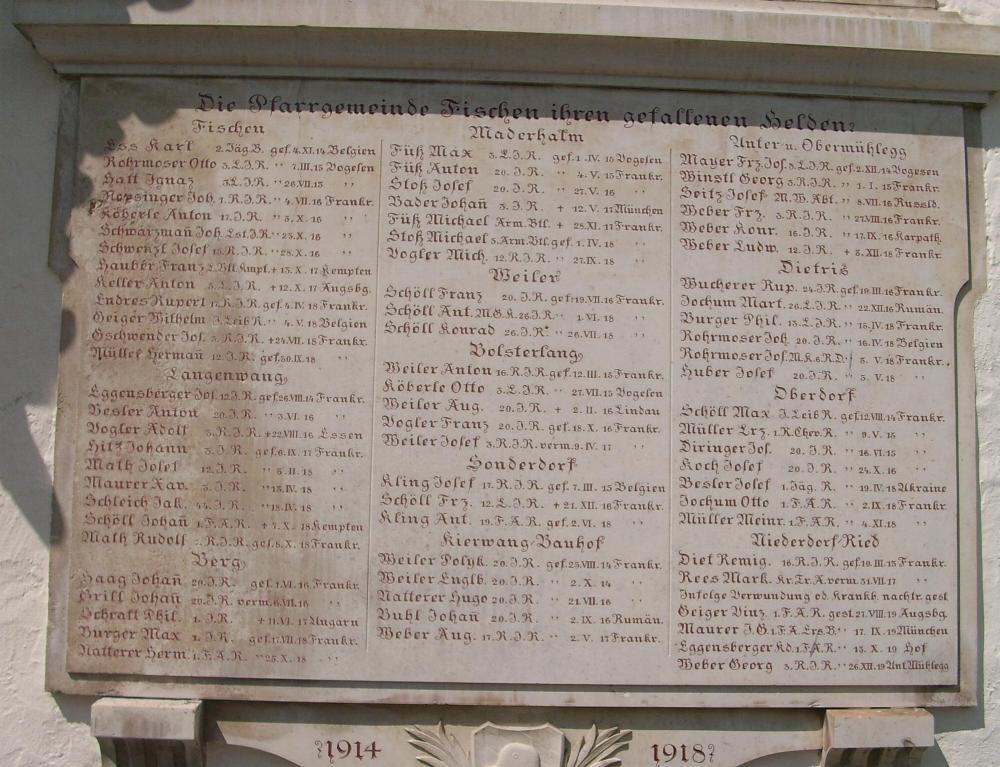 Die Pfarrgemeinde Fischen ihren gefallenen Helden:
Fischen
Ess Karl 2.Jäg.B. gef. 4.XI.14 Belgien
Rohrmoser Otto 3.L.J.R. " 7.III.15 Vogesen
Hatt Ignaz 3.L.J.R. " 26.VII.15 "
Noysinger Joh. 1.R.J.R. " 4.VII.16 Frankr.
Köberle Anton 17.J.R. " 5.X.16 "
Schwarzmañ Joh. Lst.J.R. " 23.X.16 "
Schwenzl Josef 15.R.J.R. " 28.X.16 "
Hauber Franz 2.Btl.Kmpt. + 13.X.17 Kempten
Keller Anton 3.L.J.R. + 12.X.17 Augsbg.
Endres Rupert 17.R.J.R. gef. 4.IV.18 Frankr.
Geiger Wilhelm J.Leib R. " 4.V.18 Belgien
Gschwender Jos. 3.R.J.R. + 24.VII.18 Frankr.
Müller Hermañ 12.J.R. gef. 30.IX.18 "
Langenwang
Eggensberger Jos. 12.J.R. gef. 26.VIII.14 Frankr.
Besler Anton 20.J.R. " 3.VI.16 "
Vogler Adolf 3.R.J.R. + 22.VIII.16 Essen
Hitz Johann 3.J.R. gef. 6.IX.17 Frankr.
Math Josef 12.J.R. " 5.II.18 "
Maurer Xav. 3.J.R. " 15.IV.18 "
Schleich Jak. J.R. " 18.IV.18 "
Schöll Johañ 1.F.A.R. + 7.X.18 Kempten
Math Rudolf R.J.R. gef. 8.X.18 Frankr.
Berg
Haag Johañ 20.J.R. gef. 1.VI.16 Frankr.
Grill Johañ 20.J.R. verm. 6.VII.16 "
Schratt Phil. 1.J.R. + 11.VI.17 Ungarn
Burger Max 1.J.R. gef. 17.VII.18 Frankr.
Natterer Herm. 1.F.A.R. " 25.X.18 "
Maderhalm
Füß Max 3.L.J.R. gef. 1.IV.15 Vogesen
Füß Anton 20.J.R. " 4.V.15 Frankr.
Stoß Josef 20.J.R. " 27.V.16 "
Bader Johañ 3.J.R. + 12.V.17 München
Füß Michael Arm.Btl. + 28.XI.17 Frankr.
Stoß Michael 5.Arm.Btl. gef. 1.IV.18 "
Vogler Mich. 12.R.J.R. " 27.IX.18 "
Weiler
Schöll Franz 20.J.R. gef. 19.VII.16 Frankr.
Schöll Ant. M.G.K.26.J.R. " 1.VI.18 "
Schöll Konrad 26.J.R. " 26.VII.18 "
Bolsterlang
Weiler Anton 16.R.J.R. gef. 12.III.15 Frankr.
Köberle Otto 3.L.J.R. " 27.VII.15 Vogesen
Weiler Aug. 20.J.R. + 2.II.16 Lindau
Vogler Franz 20.J.R. gef. 18.X.16 Frankr.
Weiler Josef 3.R.J.R. verm. 9.IV.17 "
Sonderdorf
Kling Josef 17.R.J.R. gef. 7.III.15 Belgien
Schöll Frz. 12.L.J.R. + 21.XII.16 Frankr.
Kling Ant. 19.F.A.R. gef. 2.VI.18 "
Kierwang-Bauhof
Weiler Polyk. 20.J.R. gef. 25.VIII.14 Frankr.
Weiler Englb. 20.J.R. " 2.X.14 "
Natterer Hugo 20.J.R. " 21.VII.16 "
Buhl Johañ 20.J.R. " 2.IX.16 Rumän.
Weber Aug. 17.R.J.R. " 2.V.17 Frankr.
Unter u. Obermühlegg
Mayer Frz.Jos. 8.L.J.R. gef. 2.XII.14 Vogesen
Winstl Georg 3.R.J.R. " 1.1.15 Frankr.
Seitz Josef M.W.Abt. " 8.VII.16 Russld.
Weber Frz. 3.R.J.R. " 27.VIII.16 Frankr.
Weber Konr. 16.J.R. " 17.IX.16 Karpath.
Weber Ludw. 12.J.R. + 5.XII.18 Frankr.
Dietris
Wucherer Rup. 24.J.R. gef. 19.III.16 Frankr.
Jochum Mart. 26.L.J.R. " 22.XII.16 Rumän.
Burger Phil. 15.L.J.R. " 15.IV.18 Frankr.
Rohrmoser Joh. 20.J.R. " 16.IV.18 Belgien
Rohrmoser Jos. M.K.6.R.D. " 5.V.18 Frankr.
Huber Josef 20.J.R. " 5.V.18 "
Oberdorf
Schöll Max J.Leib R. gef. 12.VIII.14 Frankr.
Müller Lrz. 1.R.Chev.R. " 9.V.15 "
Diringer Jos. 20.J.R. " 16.VI.15 "
Koch Josef 20.J.R. " 24.X.16 "
Besler Josef 1.Jäg.R. " 19.IV.18 Ukraine
Jochum Otto 1.F.A.R. " 2.IX.18 Frankr.
Müller Meinr. 1.F.A.R. " 4.XI.18 "
Niederdorf-Ried
Diet Remig. 16.R.J.R. gef. 10.III.15 Frankr.
Rees Mark. Kr.Tr.A. verm. 31.VII.17 "
Infolge Verwundung od. Krankh. nachtr. gest
Geiger Vinz. 1.F.A.R. gest. 27.VIII.19 Augsbg.
Maurer J.G. 1.F.A.Ers.B. " 17.IX.19 München
Eggensberger Kd. 1.F.A.R. " 15.X.19 Hof
Weber Georg 3.R.J.R. " 26.XII.19 Unt.Mühlegg
1914 1918